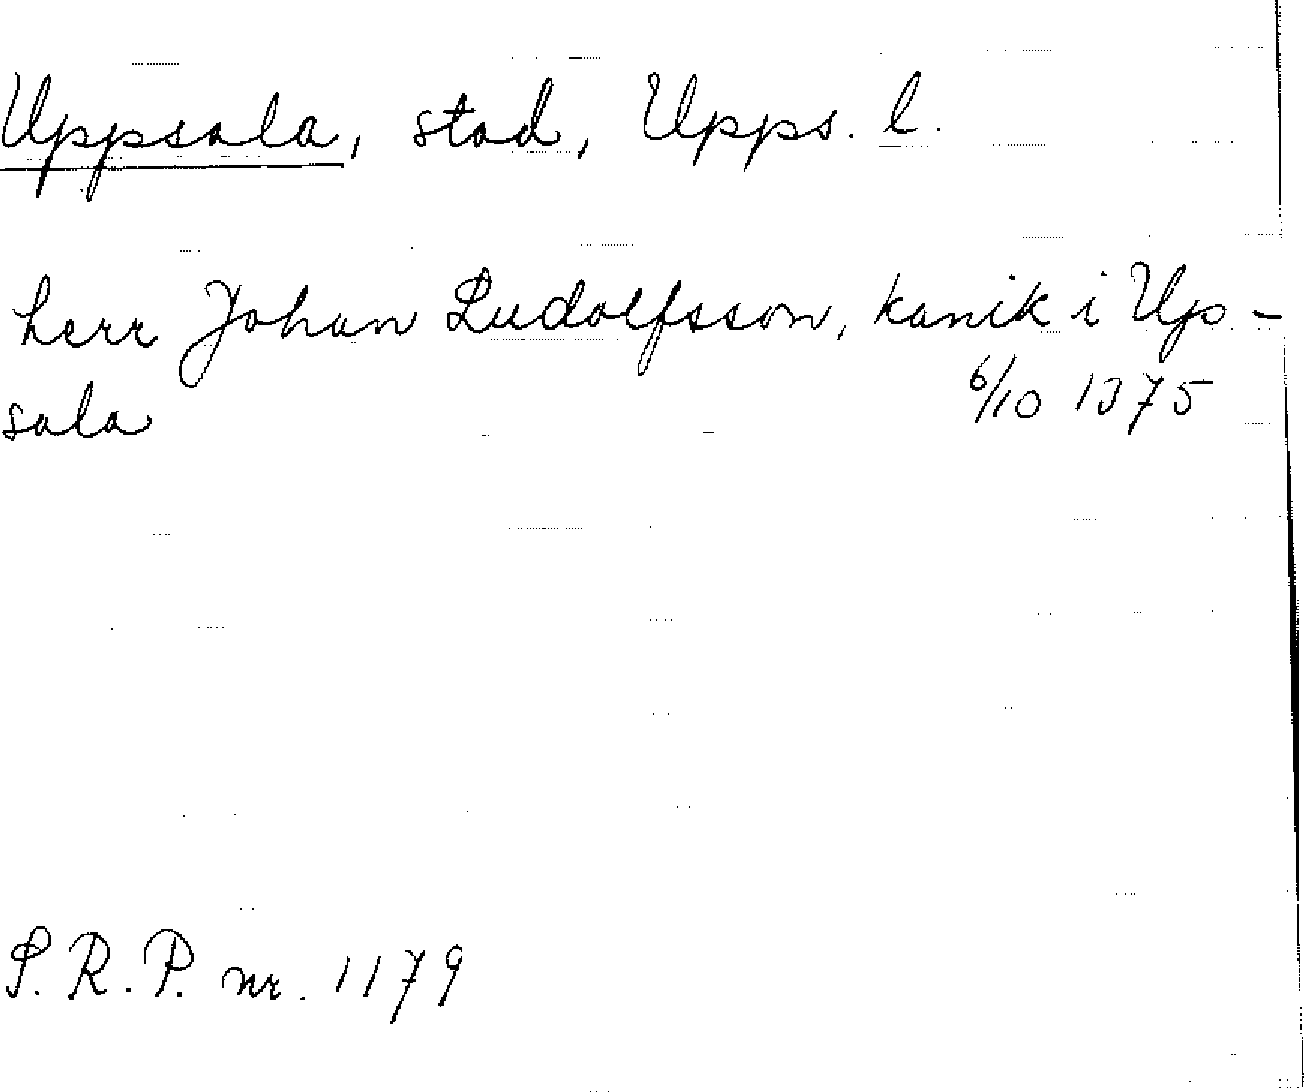 Uppsala, stad, Upps. l.
herr Johan Ludolfsson, kanik i Up-
sala
6/10 1375
S.R.P. nr. 1179